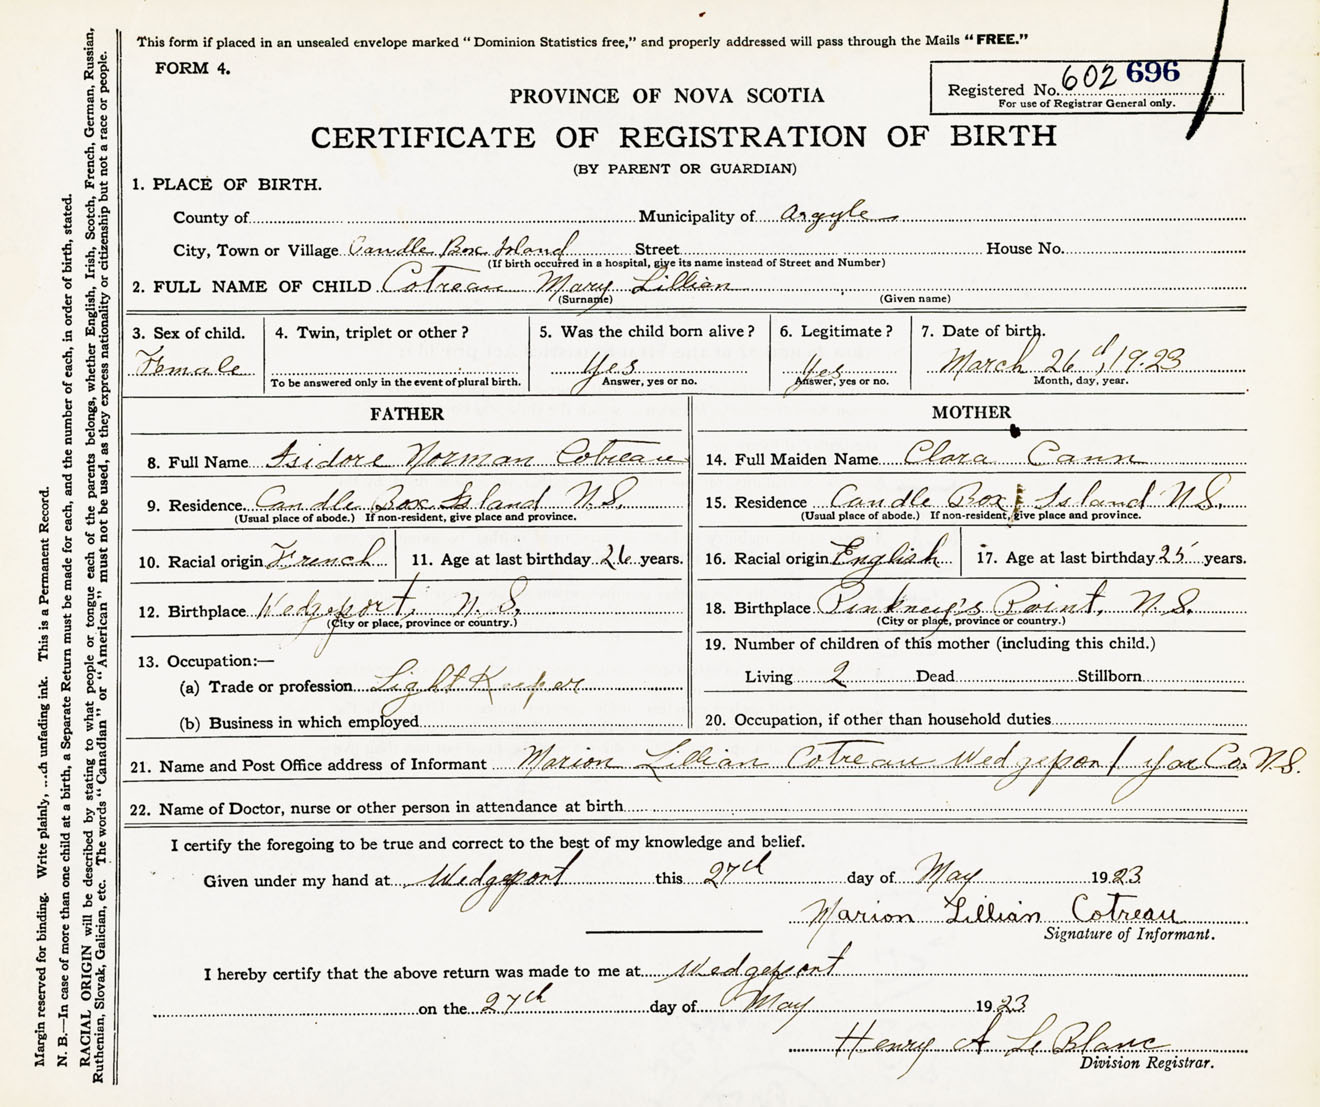 This form if placed in an unsealed envelope marked "Dominion Statistics free," and properly addressed will pass through the Mails "FREE."
FORM 4.
Registered No. 602 696
For use of Registrar General only.
PROVINCE OF NOVA SCOTIA
CERTIFICATE OF REGISTRATION OF BIRTH
(BY PARENT OR GUARDIAN)
1. PLACE OF BIRTH.
County of Municipality of Argyle
City, Town or Village Candle Box Island Street House No.
(If birth occurred in a hospital, give its name instead of Street and Number)
2. FULL NAME OF CHILD Cotreau Mary Lillian
(Surname) (Given name)
3. Sex of child. 4. Twin, triplet or other? 5. Was the child born alive? 6. Legitimate? 7. Date of birth.
Female Yes Yes March 26d, 1923
To be answered only in the event of plural birth. Answer, yes or no. Answer, yes or no. Month, day, year.
FATHER MOTHER
8. Full Name Isidore Norman Cotreau 14. Full Maiden Name Clara Cann
9. Residence Candle Box Island N.S. 15. Residence Candle Box Island N.S.
(Usual place of abode.) If non-resident, give place and province. (Usual place of abode.) If non-resident, give place and province.
10. Racial origin French 11. Age at last birthday 26 years. 16. Racial origin English 17. Age at last birthday 25 years.
12. Birthplace Wedgeport, N.S. 18. Birthplace Pinkney's Point, N.S.
(City or place, province or country.) (City or place, province or country.)
13. Occupation:— 19. Number of children of this mother (including this child.)
(a) Trade or profession Light Keeper Living 2 Dead Stillborn
(b) Business in which employed 20. Occupation, if other than household duties
21. Name and Post Office address of Informant Marion Lillian Cotreau Wedgeport Yar Co. N.S.
22. Name of Doctor, nurse or other person in attendance at birth
I certify the foregoing to be true and correct to the best of my knowledge and belief.
Given under my hand at Wedgeport this 27th day of May 1923
Marion Lillian Cotreau
Signature of Informant.
I hereby certify that the above return was made to me at Wedgeport
on the 27th day of May 1923
Henry A LeBlanc
Division Registrar.
Margin reserved for binding. Write plainly, ...ch unfading ink. This is a Permanent Record.
N. B.—In case of more than one child at a birth, a Separate Return must be made for each, and the number of each, in order of birth, stated.
RACIAL ORIGIN will be described by stating to what people or tongue each of the parents belongs, whether English, Irish, Scotch, French, German, Russian,
Ruthenian, Slovak, Galician, etc. The words "Canadian" or "American" must not be used, as they express nationality or citizenship but not a race or people.